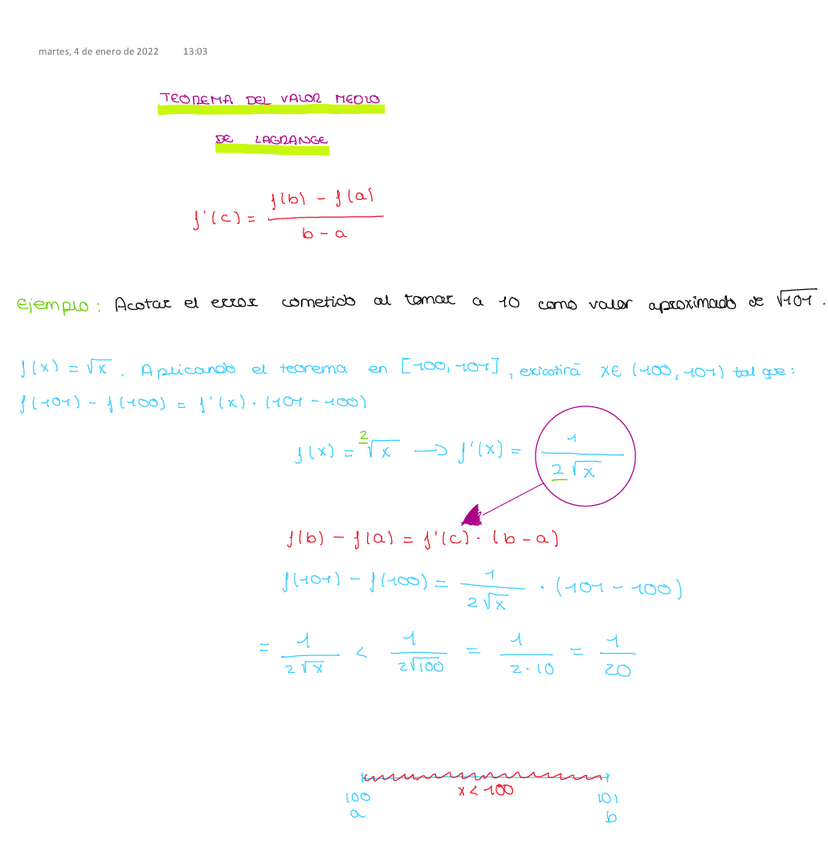 martes, 4 de enero de 2022 13:03
TEOREMA DEL VALOR MEDIO
DE LAGRANGE
f'(c) = (f(b) - f(a)) / (b - a)
ejemplo: Acotar el error cometido al tomar a 10 como valor aproximado de √101.
f(x) = √x. Aplicando el teorema en [100, 101], existirá x ∈ (100, 101) tal que:
f(101) - f(100) = f'(x) · (101 - 100)
f(x) = ²√x → f'(x) = 1 / (2√x)
f(b) - f(a) = f'(c) · (b - a)
f(101) - f(100) = 1 / (2√x) · (101 - 100)
= 1 / (2√x) < 1 / (2√100) = 1 / (2 · 10) = 1 / 20
100 x < 100 101
a b